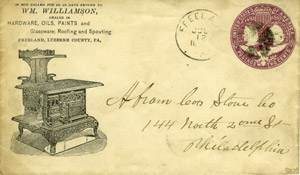 IF NOT CALLED FOR IN 10 DAYS RETURN TO
WM. WILLIAMSON,
DEALER IN
HARDWARE, OILS, PAINTS and
Glassware, Roofing and Spouting
FREELAND, LUZERNE COUNTY, PA,
FREEL
Abram Cox Stove Co
144 North 2nd St
Philadelphia